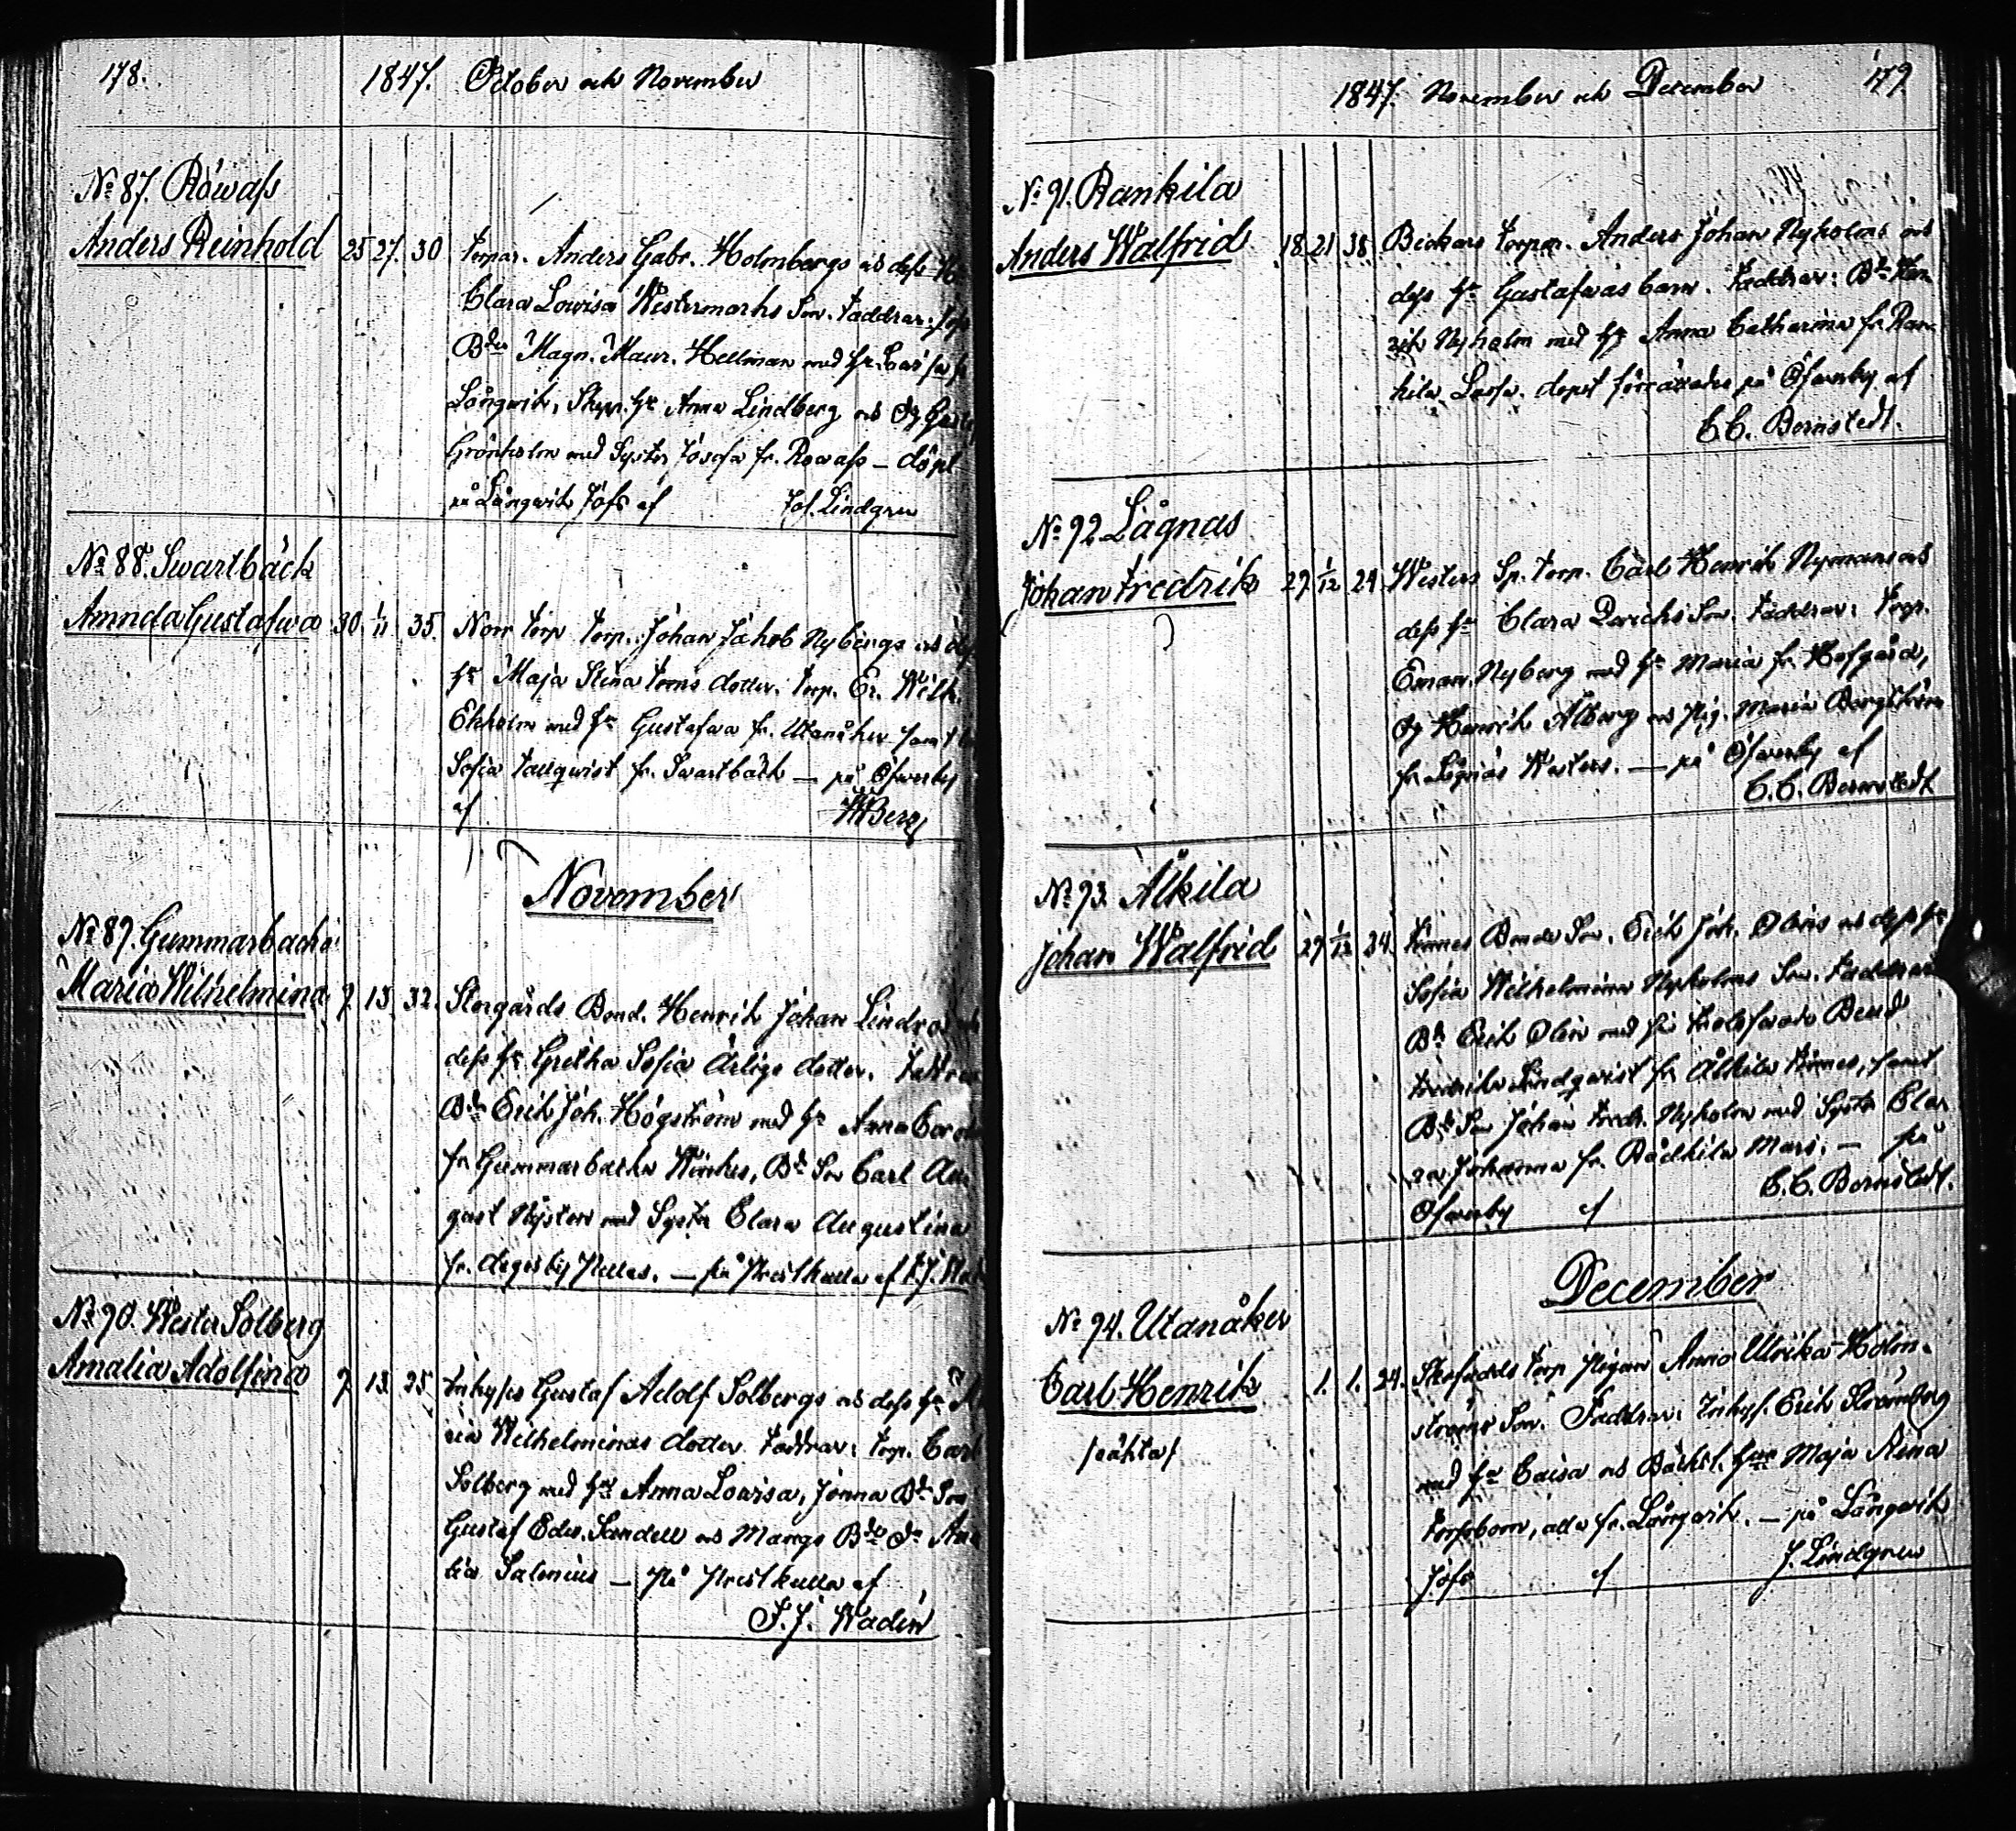 178.
1847. October och November
No 87. Röwass
Anders Reinhold 25 27. 30 torpar. Anders Gabr. Holmbergs och dess
Clara Lowisa Westermarks Son. Faddrar:
Bden Magn. Maur. Hellman med hr.
Långwik, Skepp. hr Anna Lindberg och
Grönholm med Syster Josefa fr. Rowass — döpt
på Långwik Jofs af Jos. Lindgren
No 88. Swartbäck
Amnda Gustafwa 30. 1/11 35. Norr torp torp. Johan Jakob Nybergs och
hr Maja Stina Toms dotter. torp. Er. Wilh.
Ekholm med hr Gustafwa fr. Utanåker samt
Sofia Tallqwist fr. Swartbäck — på Öfwerby
af WBerg
November
No 89. Gummarbacka
Maria Wilhelmina 9 13. 32. Storgårds Bond. Henrik Johan Lindros
dess hr Gretha Sofia Ärligs dotter.
Bdn Erik Joh. Högström med hr Anna
fr. Gummarbacka Winkes, Bde Son Carl Au
gust Nysten med Syster Clara Augustina
fr. degerby Nilles. — på Prestkulla af F. J.
No 90. Wester Solberg
Amalia Adolfina 9 13. 25 Inhyses Gustaf Adolf Solbergs och dess hr
ria Wilhelminas dotter. Faddrar: torp. Carl
Solberg med hr Anna Lowisa, Jönna Bde Son
Gustaf Edv. Sandell och Mangs Bde Dr
lia Salenius — på Prestkulla af
F. J. Wadén
1847. November och December
179
No 91. Rankila
Anders Walfrid 18. 21 38. Bickars torpar. Anders Johan Nyholms och
dess hr Gustafwas barn. Faddrar: Bdn Hen
rik Nyholm med hr Anna Catharina fr. Ran
kila Lassa. dopet förrättades på Öfwerby af
C. C. Bernstedt.
No 92 Lågnäs
Johan Fredrik 29. 1/12 24. Westers Sp. torp. Carl Henrik Nymans och
dess hr Clara Son. Faddrar: Torp.
Eman. Nyberg med hr Maria fr. Hofgård,
Dg Henrik Ahlberg och Pig. Maria Bergström
fr. Lågnäs Westers. — på Öfwerby af
C. C. Bernstedt
No 93. Ålkila
Johan Walfrid 29 1/12 34. Finnes Bonde Son. Erik Joh. Olins och dess hr
Sofia Wilhelmina Nyholms Son. Faddrar
Bdn Erik Olin med
Fredrika Lindqwist fr. Ålkila Finnes, samt
Bde Son Johan Fredr. Nyholm med Syster Cla
ra Johanna fr. Bäckkila Mars. — på
Öfwerby af C. C. Bernstedt.
December
No 94. Utanåker
Carl Henrik 1. 1. 24. torp Pigan Anna Ulrika Holm
ströms Son. Faddrar: Inhys. Erik Strömberg
/oäkta/ med hr Caisa och Bäckst. hr Maja Stina
Forssbom, alla fr. Långwik. — på Långwik
Jofs af J. Lindgren